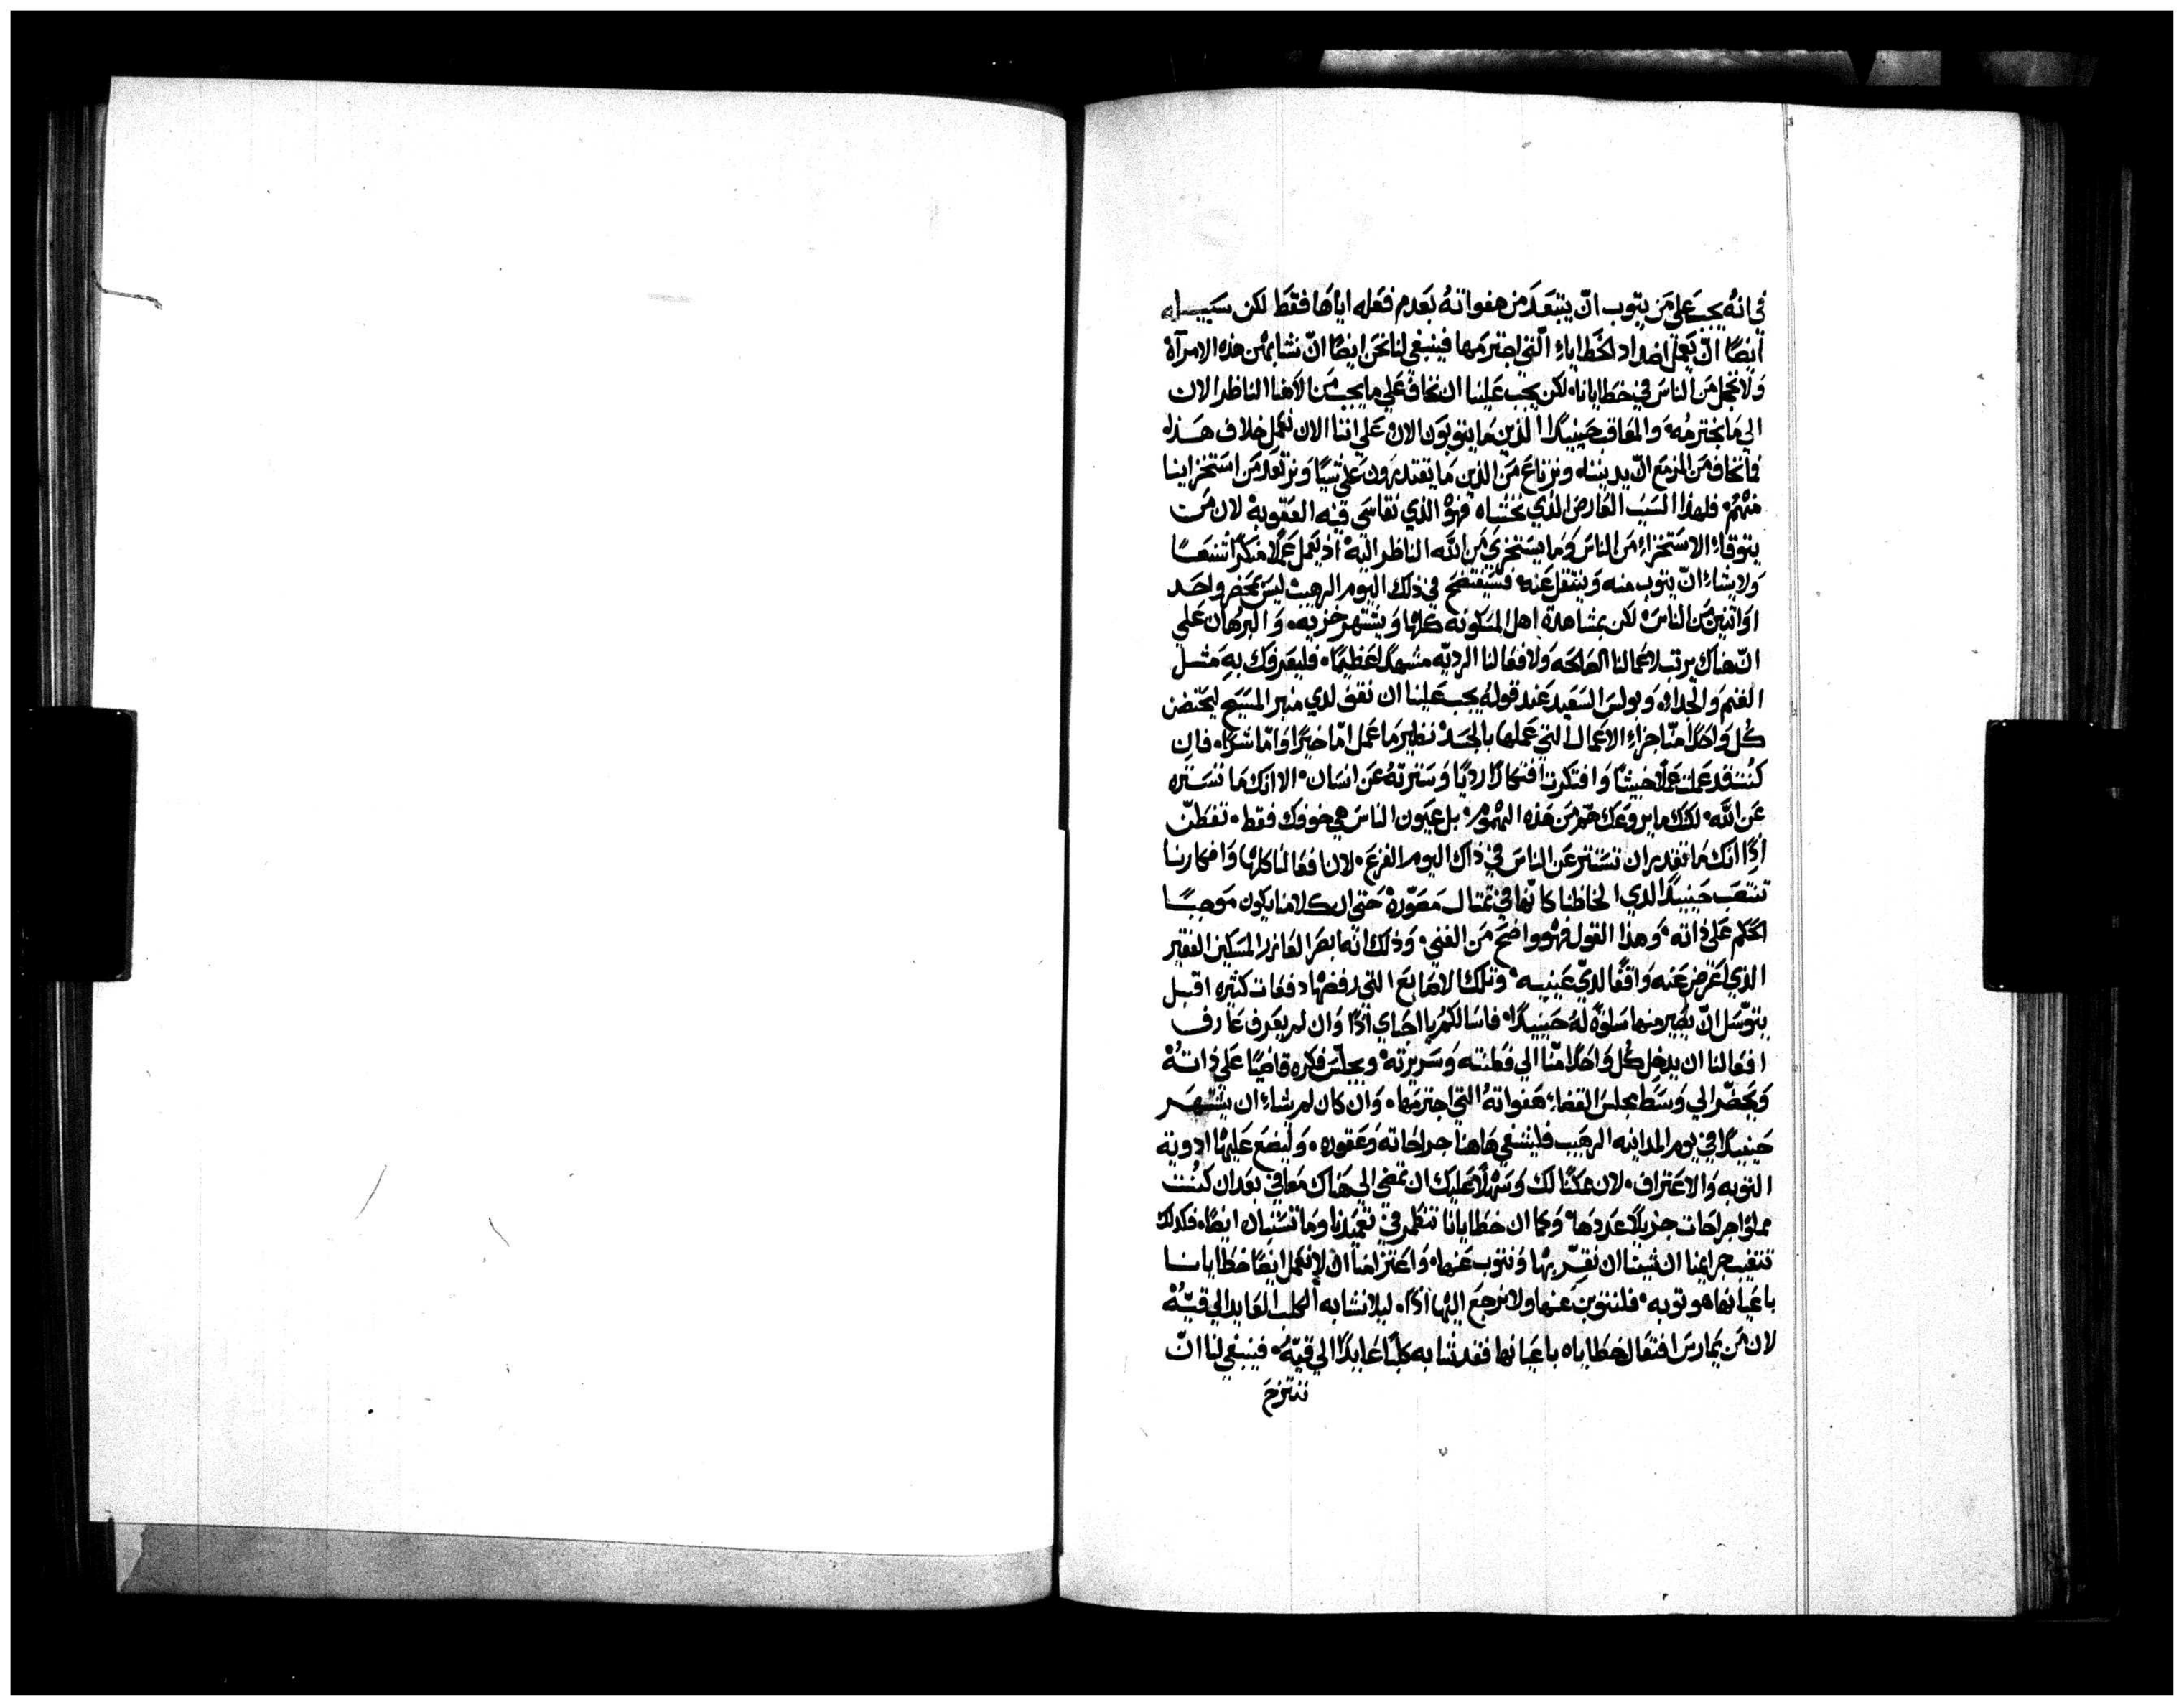 في انهُ يجب على من يتوب ان يبتعد من هفواته بعدم فعله اياها فقط لكن سبيله
ايضًا ان يعمل اضداد الخطاياء التي اجترمها فينبغي لنا نحن ايضًا ان نشابه من هذه الامرآة
ولا نخجل من الناس في خطايانا، لكن يجب علينا ان نخاف على ما يجب من الاهنا الناظر الان
الي ما نجترمه والمعاقب حينيذًا الذين ما يتوبون الان، على اننا الان نعمل خلاف هذه
فما نخاف من المزمع ان يديننا، ونرتاع من الذين ما يقتدرون علي شيًا ونرتعد من استخزاينا
منهم، فلهذا السبب العارض الذي نخشاه فهو الذي نقاسي فيه العقوبه لان من
يتوقاء الاستخزاء من الناس وما يستخزي من الله الناظر اليه اذ يعمل عملًا منكرًا شنعًا
ولا يشاء ان يتوب منه وينتقل عنه، فسيفتضح في ذلك اليوم الرهيب ليس بمحضر واحد
او اثنين من الناس، لكن بمشاهدة اهل المسكونه كلها ويشتهر خزيه، والبرهان علي
ان هناك يرتب لاعمالنا الصالحه ولافعالنا الرديه مشهدًا عظيمًا، فليعرفك به مثل
الغنم والجداء، وبولس السعيد عند قوله يجب علينا ان نقف لدي منبر المسيح ليحتضن
كل واحدًا منّا جزاء الاعمال التي عملها بالجسد نظير ما عمل امّا خيرًا وامّا شرًا، فان
كنت قد عملت عملًا خبيثًا وافتكرت افتكارًا رديًا وسترته عن انسان، الا انك ما تستره
عن الله، لكنك ما يروعك همّ من هذه الهموم، بل عيون الناس هي خوفك فقط، تفطّن
اذًا انك ما تقدر ان تستتر عن الناس في ذاك اليوم الفزع، لان افعالنا كلها وافكارنا
تنتصب حينيذًا لدي الحاظنا كانها في تمثال مصورة حتى ان كلامنا يكون موجبًا
الحكم على ذاته، وهذا القول فهو واضح من الغني، وذلك انه ابصر العازر المسكين الفقير
الذي اعرض عنه واقفًا لديّ عينيه، وتلك الاصابع التي رفضها دفعات كثيره اقبل
يتوسل ان يصير منها سلوة له حينيذًا، فاسالكم يا احباي اذًا وان لم يعرف عارف
افعالنا ان يدخل كل واحدًا منّا الي فطنته وسريرته ويجلس فكره قاضيًا على ذاته
ويحضر الي وسط مجلس القضاء هفواته التي اجترمها، وان كان لم يشاء ان يشتهر
حينيذًا في يوم المداينه الرهيب فليشفي هاهنا جراحاته وعقوره، وليضع عليها ادوية
التوبه والاعتراف، لان ممكنًا لك وسهلًا عليك ان تمضي الي هناك معافي بعد ان كنت
مملوا جراحات جزيلًا عددها، وكما ان خطايانا تنطمر في تعميدنا وما تستبان ايضًا، فكذلك
تتغيب جرايمنا ان شينا ان نقرّ بها ونتوب عنها، واعتزامنا ان لا نعمل ايضًا خطايانا
باعيانها هو توبه، فلنتوبن عنها ولا نرجع اليها اذًا، ليلا نشابه الكلب العايد الي قيّه
لان من يمارس افتعال خطاياه باعيانها فقد شابه كلبًا عايدًا الي قيّه، فينبغي لنا انّ
ننتزح